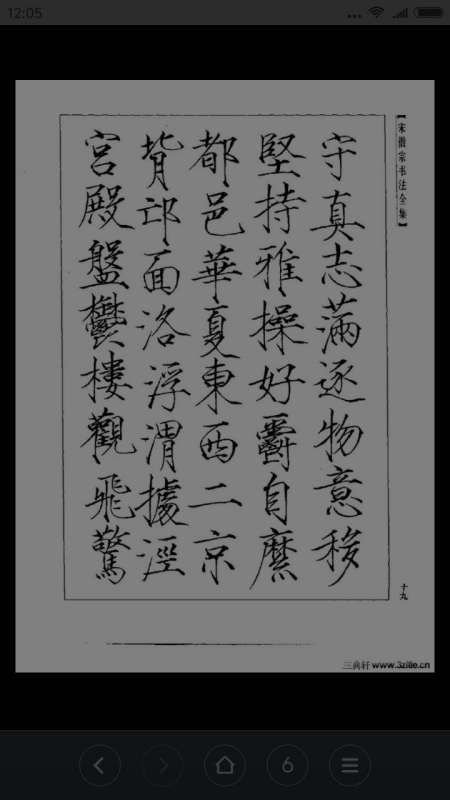 12:05
【宋徽宗书法全集】
守真志滿逐物意移
堅持雅操好爵自縻
都邑華夏東西二京
背邙面洛浮渭據涇
宮殿盤鬱樓觀飛驚
十九
三典轩 www.3zitie.cn
6